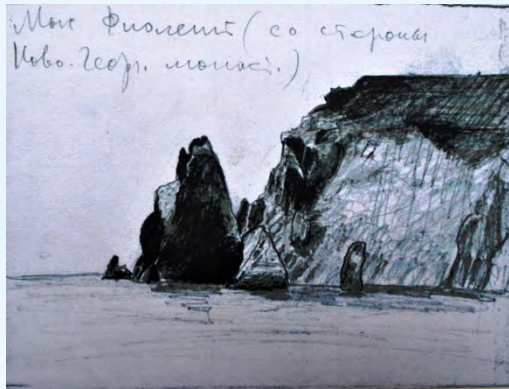 Мыс Фиолент (со стороны
Ново-Геор. монаст.)